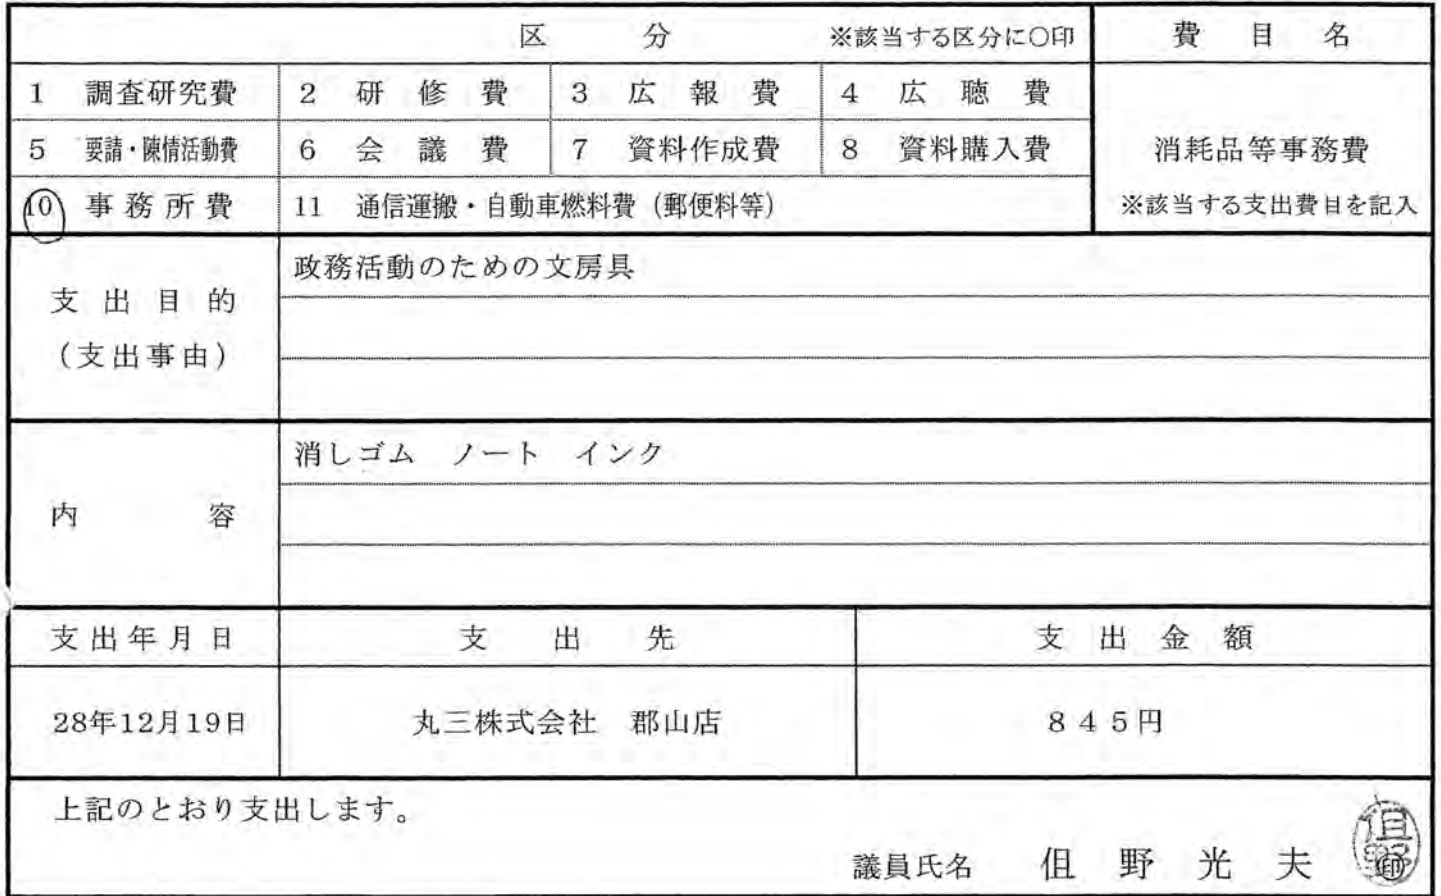 区 分 ※該当する区分に○印 費 目 名
1 調査研究費 2 研 修 費 3 広 報 費 4 広 聴 費
5 要請・陳情活動費 6 会 議 費 7 資料作成費 8 資料購入費 消耗品等事務費
10 事務所費 11 通信運搬・自動車燃料費（郵便料等） ※該当する支出費目を記入
支 出 目 的
（支出事由）
政務活動のための文房具
内 容
消しゴム ノート インク
支出年月日 支 出 先 支 出 金 額
28年12月19日 丸三株式会社 郡山店 845円
上記のとおり支出します。
議員氏名 伹 野 光 夫 印